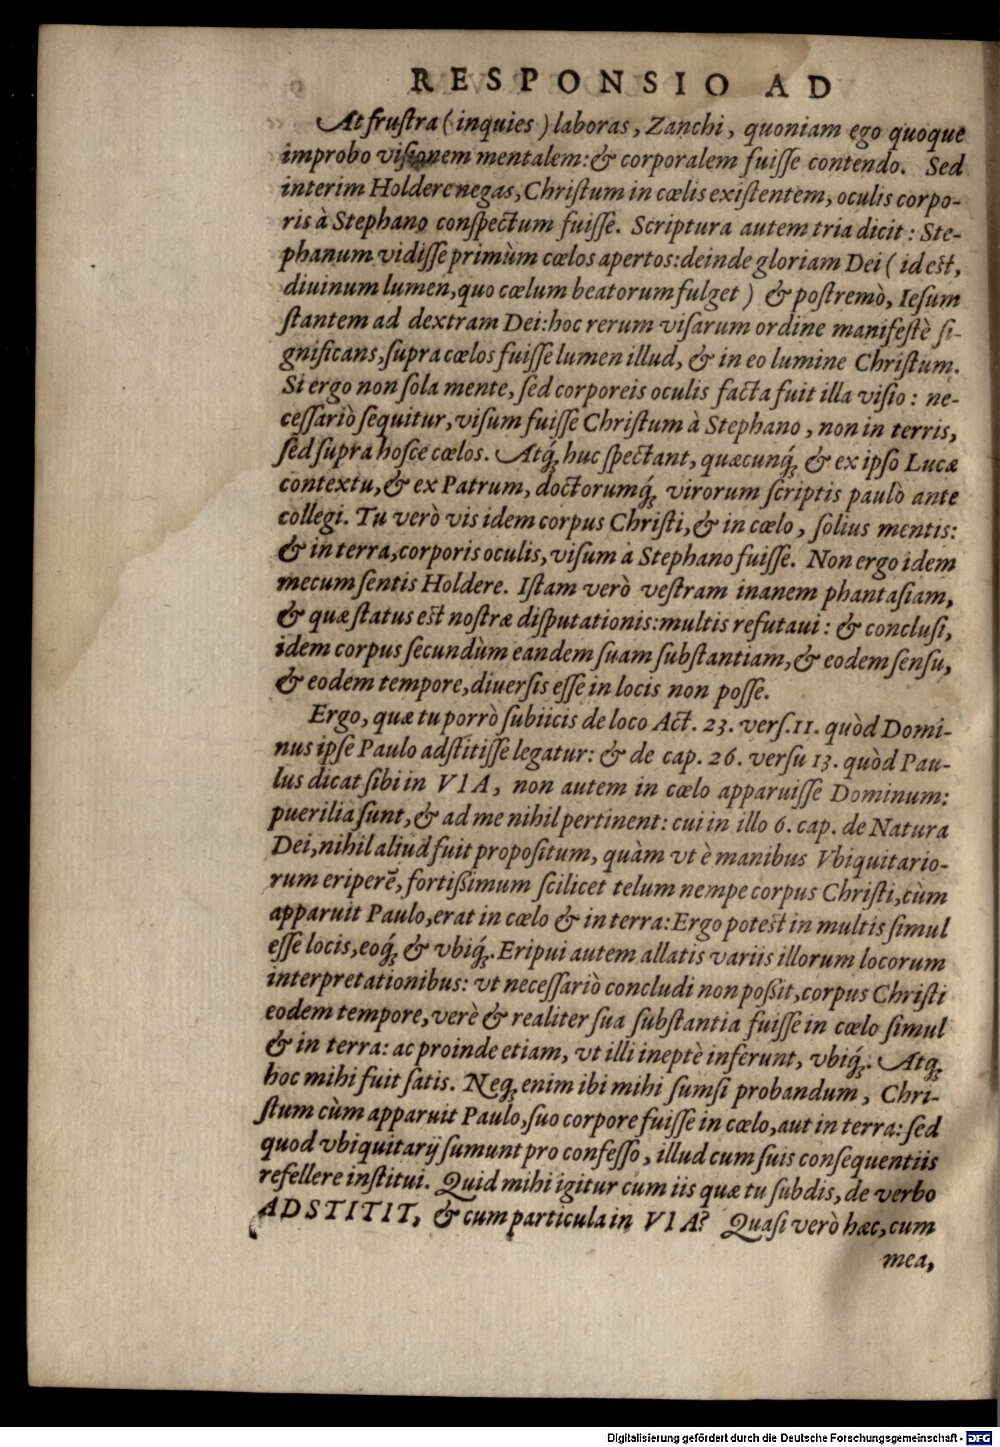 RESPONSIO AD
At fruſtra (inquies) laboras, Zanchi, quoniam ego quoque
improbo viſionem mentalem: & corporalem fuiſſe contendo. Sed
interim Holdere negas, Chriſtum in cœlis exiſtentem, oculis corpo-
ris à Stephano conſpectum fuiſſe. Scriptura autem tria dicit: Ste-
phanum vidiſſe primùm cœlos apertos: deinde gloriam Dei (id eſt,
diuinum lumen, quo cœlum beatorum fulget) & poſtremò, Ieſum
ſtantem ad dextram Dei: hoc rerum viſarum ordine manifeſtè ſi-
gnificans, ſupra cœlos fuiſſe lumen illud, & in eo lumine Chriſtum.
Si ergo non ſola mente, ſed corporeis oculis facta fuit illa viſio: ne-
ceſſariò ſequitur, viſum fuiſſe Chriſtum à Stephano, non in terris,
ſed ſupra hoſce cœlos. Atq́; huc ſpectant, quæcunq́; & ex ipſo Lucæ
contextu, & ex Patrum, doctorumq́; virorum ſcriptis paulò ante
collegi. Tu verò vis idem corpus Chriſti, & in cœlo, ſolius mentis:
& in terra, corporis oculis, viſum à Stephano fuiſſe. Non ergo idem
mecum ſentis Holdere. Iſtam verò veſtram inanem phantaſiam,
& quæ ſtatus eſt noſtræ diſputationis: multis refutaui: & concluſi,
idem corpus ſecundùm eandem ſuam ſubſtantiam, & eodem ſenſu,
& eodem tempore, diuerſis eſſe in locis non poſſe.
Ergo, quæ tu porrò ſubiicis de loco Act. 23. verſ. 11. quòd Domi-
nus ipſe Paulo adſtitiſſe legatur: & de cap. 26. verſu 13. quòd Pau-
lus dicat ſibi in VIA, non autem in cœlo apparuiſſe Dominum:
puerilia ſunt, & ad me nihil pertinent: cui in illo 6. cap. de Natura
Dei, nihil aliud fuit propoſitum, quàm vt è manibus Vbiquitario-
rum eriperẽ, fortißimum ſcilicet telum nempe corpus Chriſti, cùm
apparuit Paulo, erat in cœlo & in terra: Ergo poteſt in multis ſimul
eſſe locis, eoq́; & vbiq́;. Eripui autem allatis variis illorum locorum
interpretationibus: vt neceſſariò concludi non poßit, corpus Chriſti
eodem tempore, verè & realiter ſua ſubſtantia fuiſſe in cœlo ſimul
& in terra: ac proinde etiam, vt illi ineptè inferunt, vbiq́;. Atq;
hoc mihi fuit ſatis. Neq; enim ibi mihi ſumſi probandum, Chri-
ſtum cùm apparuit Paulo, ſuo corpore fuiſſe in cœlo, aut in terra: ſed
quod vbiquitarij ſumunt pro confeſſo, illud cum ſuis conſequentiis
refellere inſtitui. Quid mihi igitur cum iis quæ tu ſubdis, de verbo
ADSTITIT, & cum particula in VIA? Quaſi verò hæc, cum
mea,
Digitalisierung gefördert durch die Deutsche Forschungsgemeinschaft - DFG